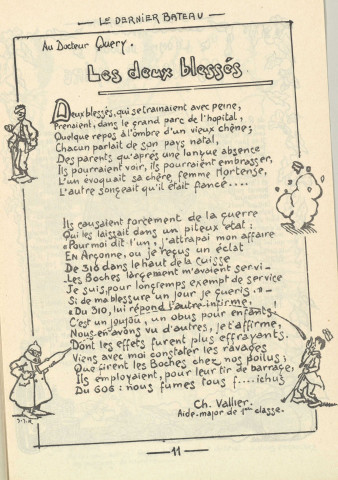 — LE DERNIER BATEAU —
Au Docteur Query.
Les deux blessés.
Deux blessés, qui se trainaient avec peine,
Prenaient, dans le grand parc de l'hopital,
Quelque repos à l'ômbre d'un vieux chêne;
Chacun parlait de son pays natal,
Des parents qu'après une longue absence
Ils pourraient voir, ils pourraient embrasser,
L'un évoquait sa chère femme Hortense,
L'autre songeait qu'il était fiancé....
Ils causaient forcement de la guerre
Qui les laissait dans un piteux état:
«Pour moi dit l'un, j'attrapai mon affaire
En Argonne, ou je reçus un éclat
De 310 dans le haut de la cuisse
Les Boches largement m'avaient servi-
Je suis, pour longtemps exempt de service
Si de ma blessure un jour je gueris.»—
«Du 310, lui répond l'autre infirme,
C'est un joujou, un obus pour enfants
Nous en avons vu d'autres, je t'affirme,
Dont les effets furent plus effrayants.
Viens avec moi constater les ravages
Que firent les Boches chez nos poilus;
Ils employaient, pour leur tir de barrage,
Du 606: nous fumes tous f....ichus
Ch. Vallier.
Aide-major de 1ère classe.
— 11 —